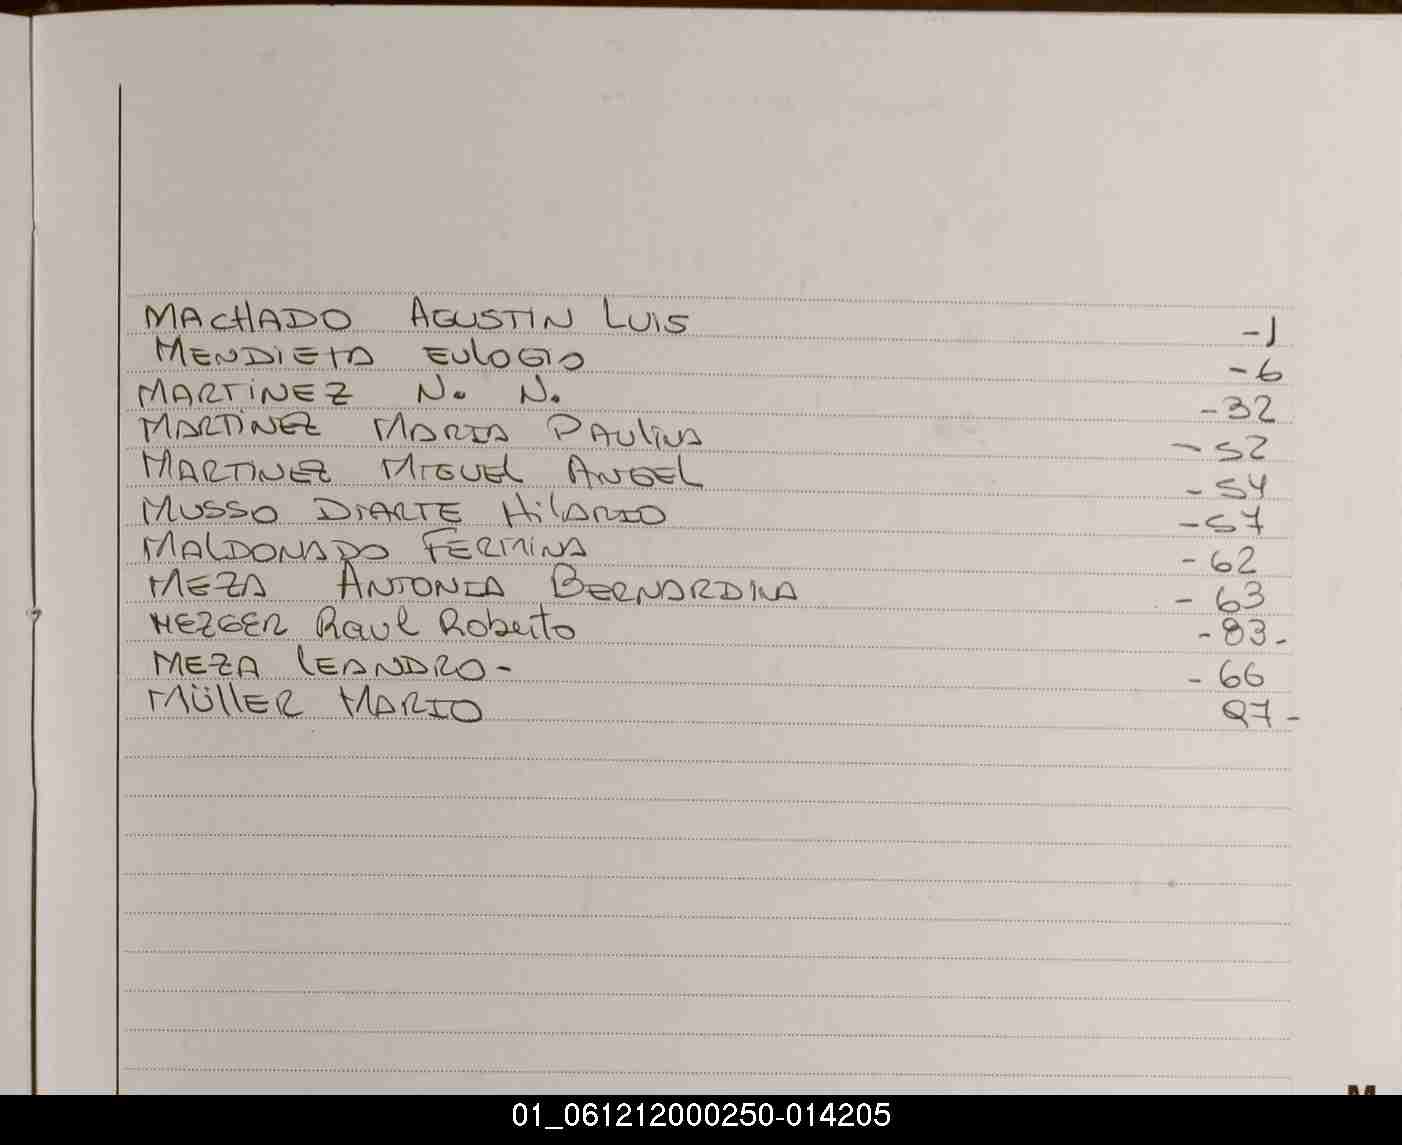 MACHADO AGUSTIN LUIS -1
MENDIETA EULOGIO -6
MARTINEZ N. N. -32
MARTINEZ MARIA PAULINA -52
MARTINEZ MIGUEL ANGEL -54
MUSSO DIARTE HILARIO -57
MALDONADO FERMINA -62
MEZA ANTONIA BERNARDINA -63
MEZGER Raul Roberto -83-
MEZA LEANDRO- -66
MÜLLER MARIO 97-
M
01_061212000250-014205